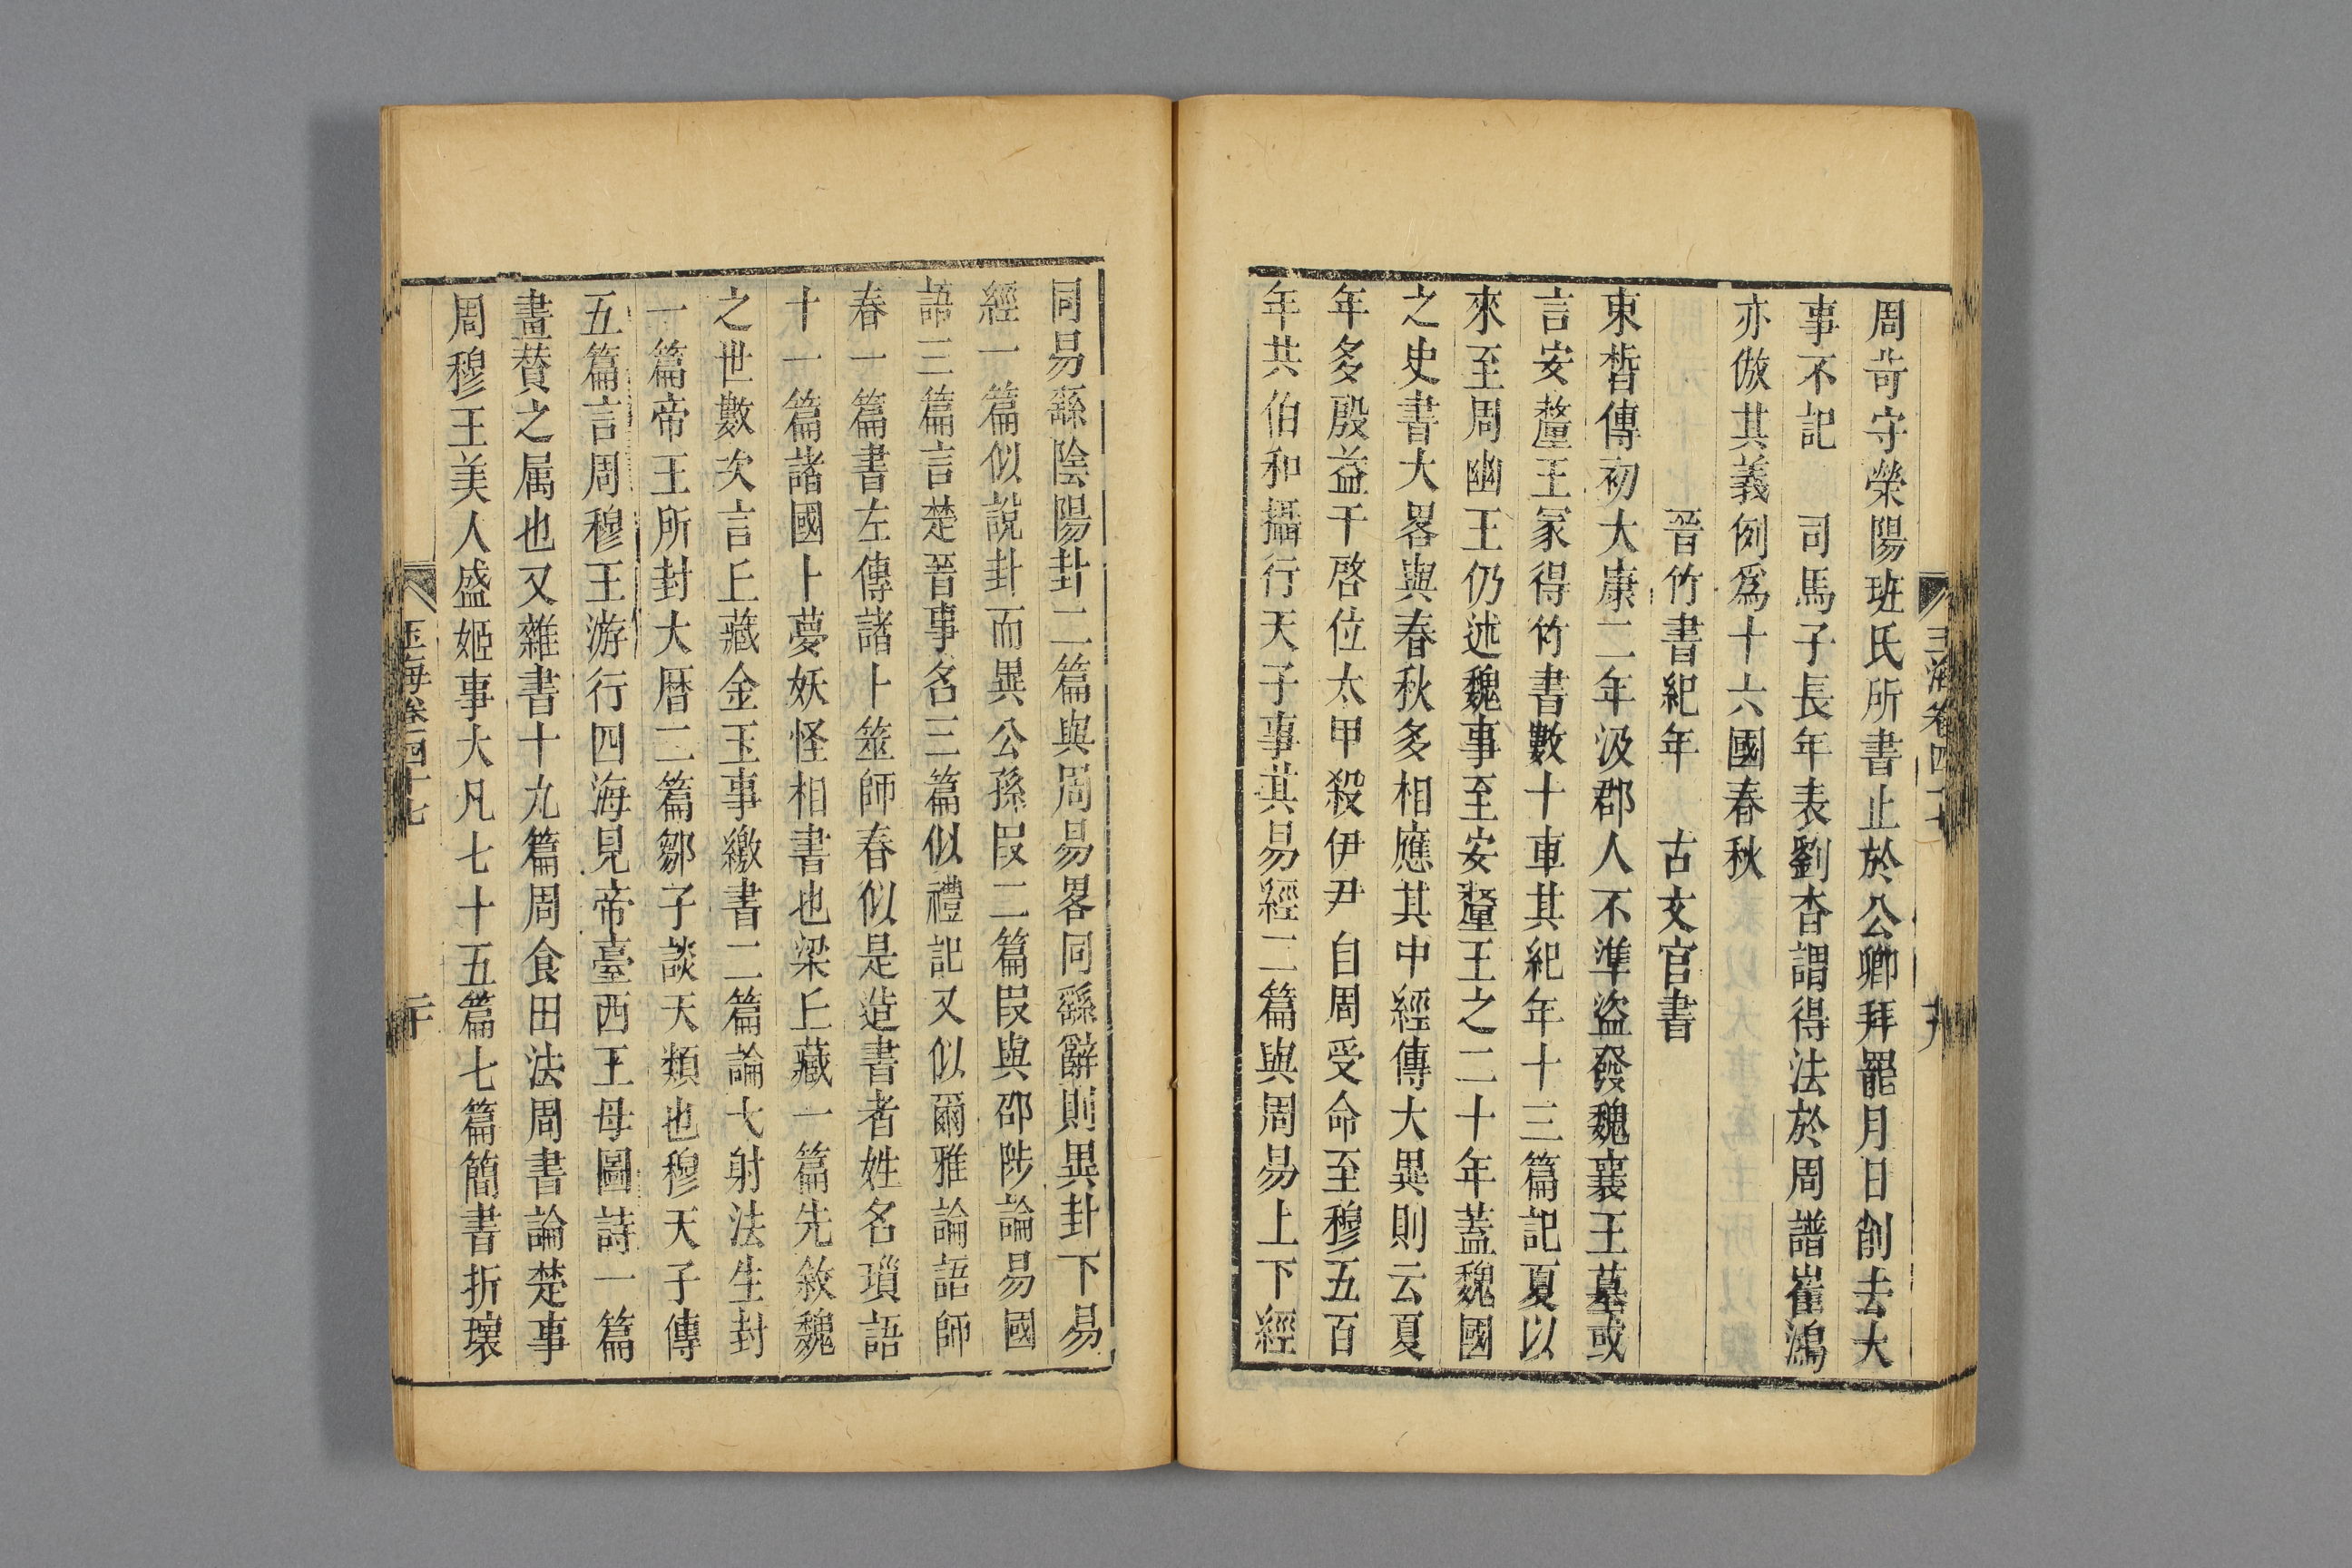 周苛守滎陽班氏所書止於公卿拜罷月日削去大
事不記　司馬子長年表劉杳謂得法於周譜崔鴻
亦倣其義例爲十六國春秋
晉竹書紀年　古文官書
束晳傳初大康二年汲郡人不準盜發魏襄王墓或
言安釐王冢得竹書數十車其紀年十三篇記夏以
來至周幽王仍述魏事至安釐王之二十年蓋魏國
之史書大畧與春秋多相應其中經傳大異則云夏
年多殷益干啓位太甲殺伊尹自周受命至穆五百
年共伯和攝行天子事其易經二篇與周易上下經
同易繇陰陽卦二篇與周易畧同繇辭則異卦下易
經一篇似說卦而異公孫叚二篇叚與邵陟論易國
語三篇言楚晉事名三篇似禮記又似爾雅論語師
春一篇書左傳諸卜筮師春似是造書者姓名瑣語
十一篇諸國卜夢妖怪相書也梁丘藏一篇先敘魏
之世數次言丘藏金玉事繳書二篇論弋射法生封
一篇帝王所封大曆二篇鄒子談天類也穆天子傳
五篇言周穆王游行四海見帝臺西王母圖詩一篇
畫賛之属也又雜書十九篇周食田法周書論楚事
周穆王美人盛姬事大凡七十五篇七篇簡書折壞
玉海卷四十七
二十